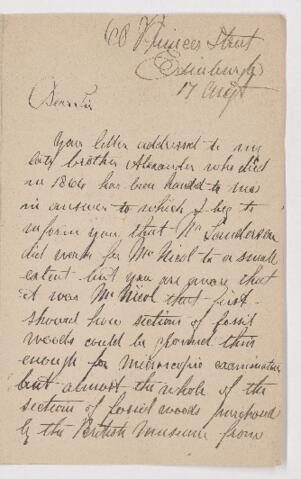 60 Princes Street
Edinburgh
17 Augt
Dear Sir
Your letter addressed to my
late brother Alexander who died
in 1864 has been handed to me
in answer to which I beg to
inform you that Mr Sanderson
did work for Mr Nicol to a small
extent but you are aware that
it was Mr Nicol that first
showed how sections of fossil
woods could be ground thin
enough for microscopic examination
but almost the whole of the
sections of fossil woods purchased
by the British Museum from